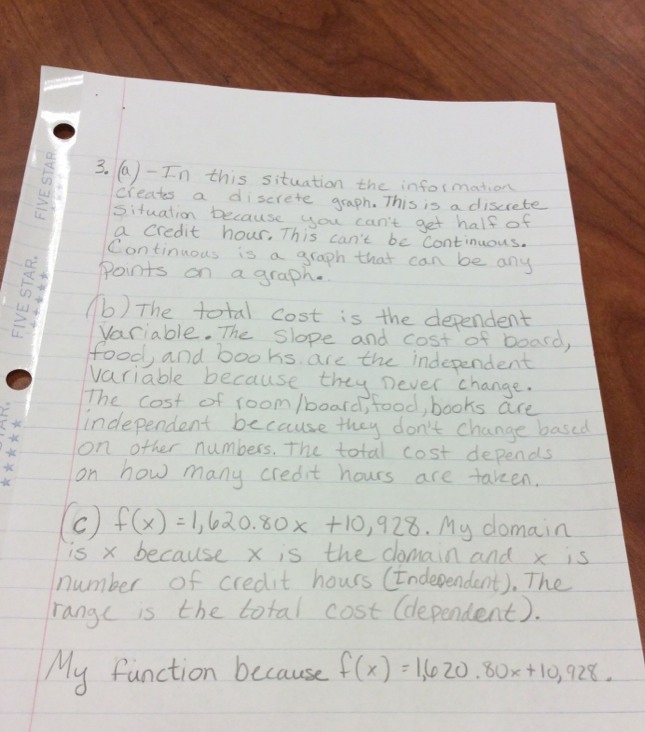 3. (a) - In this situation the information
creates a discrete graph. This is a discrete
situation because you can't get half of
a credit hour. This can't be continuous.
Continuous is a graph that can be any
points on a graph.
(b) The total cost is the dependent
variable. The slope and cost of board,
food, and books are the independent
variable because they never change.
The cost of room/board, food, books are
independent because they don't change based
on other numbers. The total cost depends
on how many credit hours are taken.
(c) f(x) = 1,620.80x + 10,928. My domain
is x because x is the domain and x is
number of credit hours (Independent). The
range is the total cost (dependent).
My function because f(x) = 1,620.80x + 10,928.
FIVE STAR.
★★★★★
FIVE STAR.
★★★★★
STAR.
★★★★★